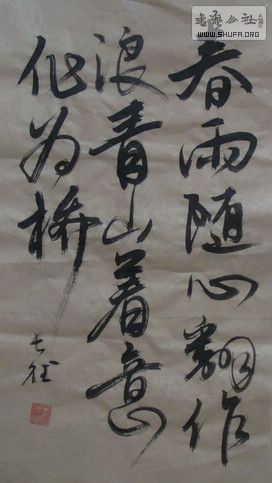 书艺公社
WWW.SHUFA.ORG
春雨随心翻作
浪青山着意
化为桥
长征